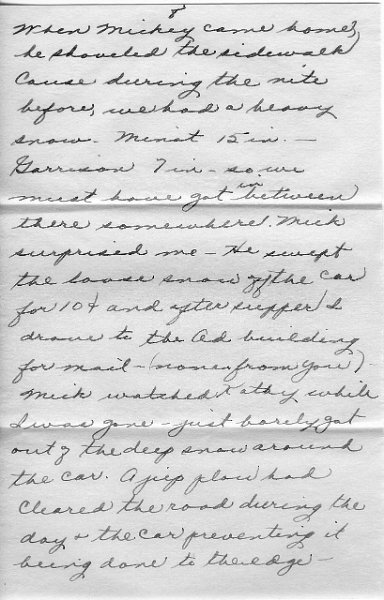 8
When Mickey came home,
he shoveled the sidewalk
Cause during the nite
before, we had a heavy
snow. Minot 15 in. —
Garrison 7 in - so we
must have got in between
there somewhere. Mick
surprised me - He swept
the loose snow off the car
for 10¢ and after supper I
drove to the Ad building
for mail - (none from you)
Mick watched Kathy while
I was gone - just barely got
out of the deep snow around
the car. A jeep plow had
cleared the road during the
day & the car preventing it
being done to the edge -